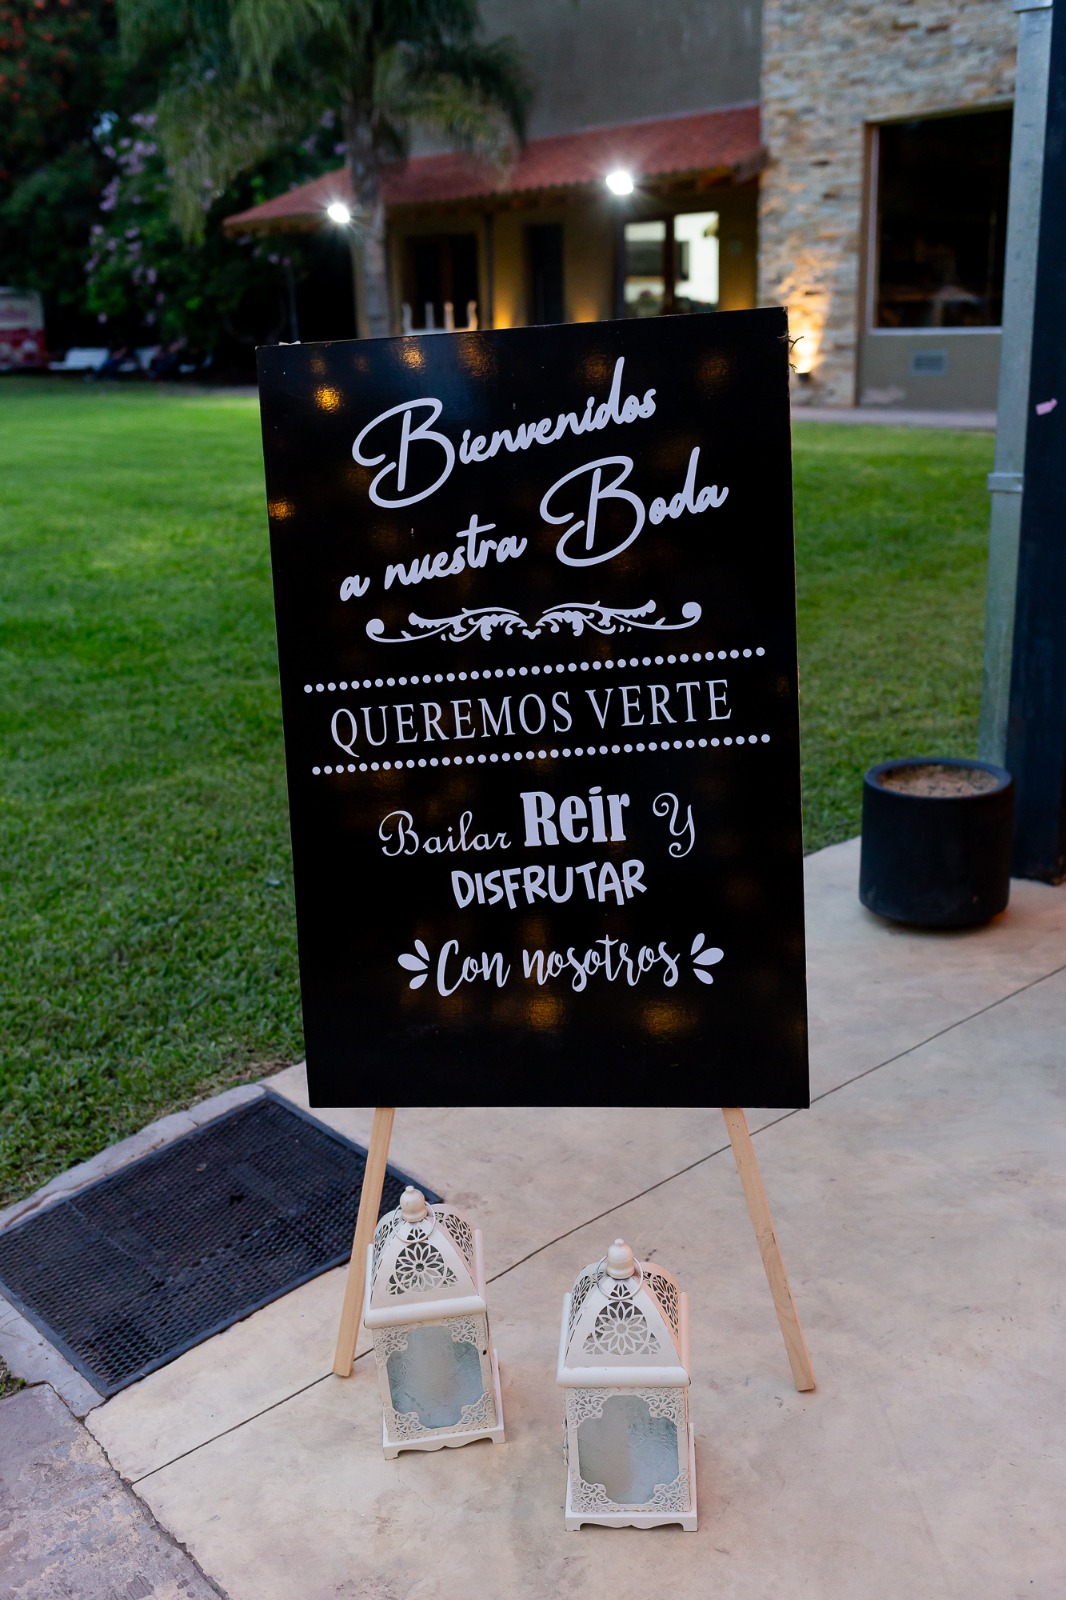 Bienvenidos
a nuestra Boda
QUEREMOS VERTE
Bailar Reir Y
DISFRUTAR
Con nosotros